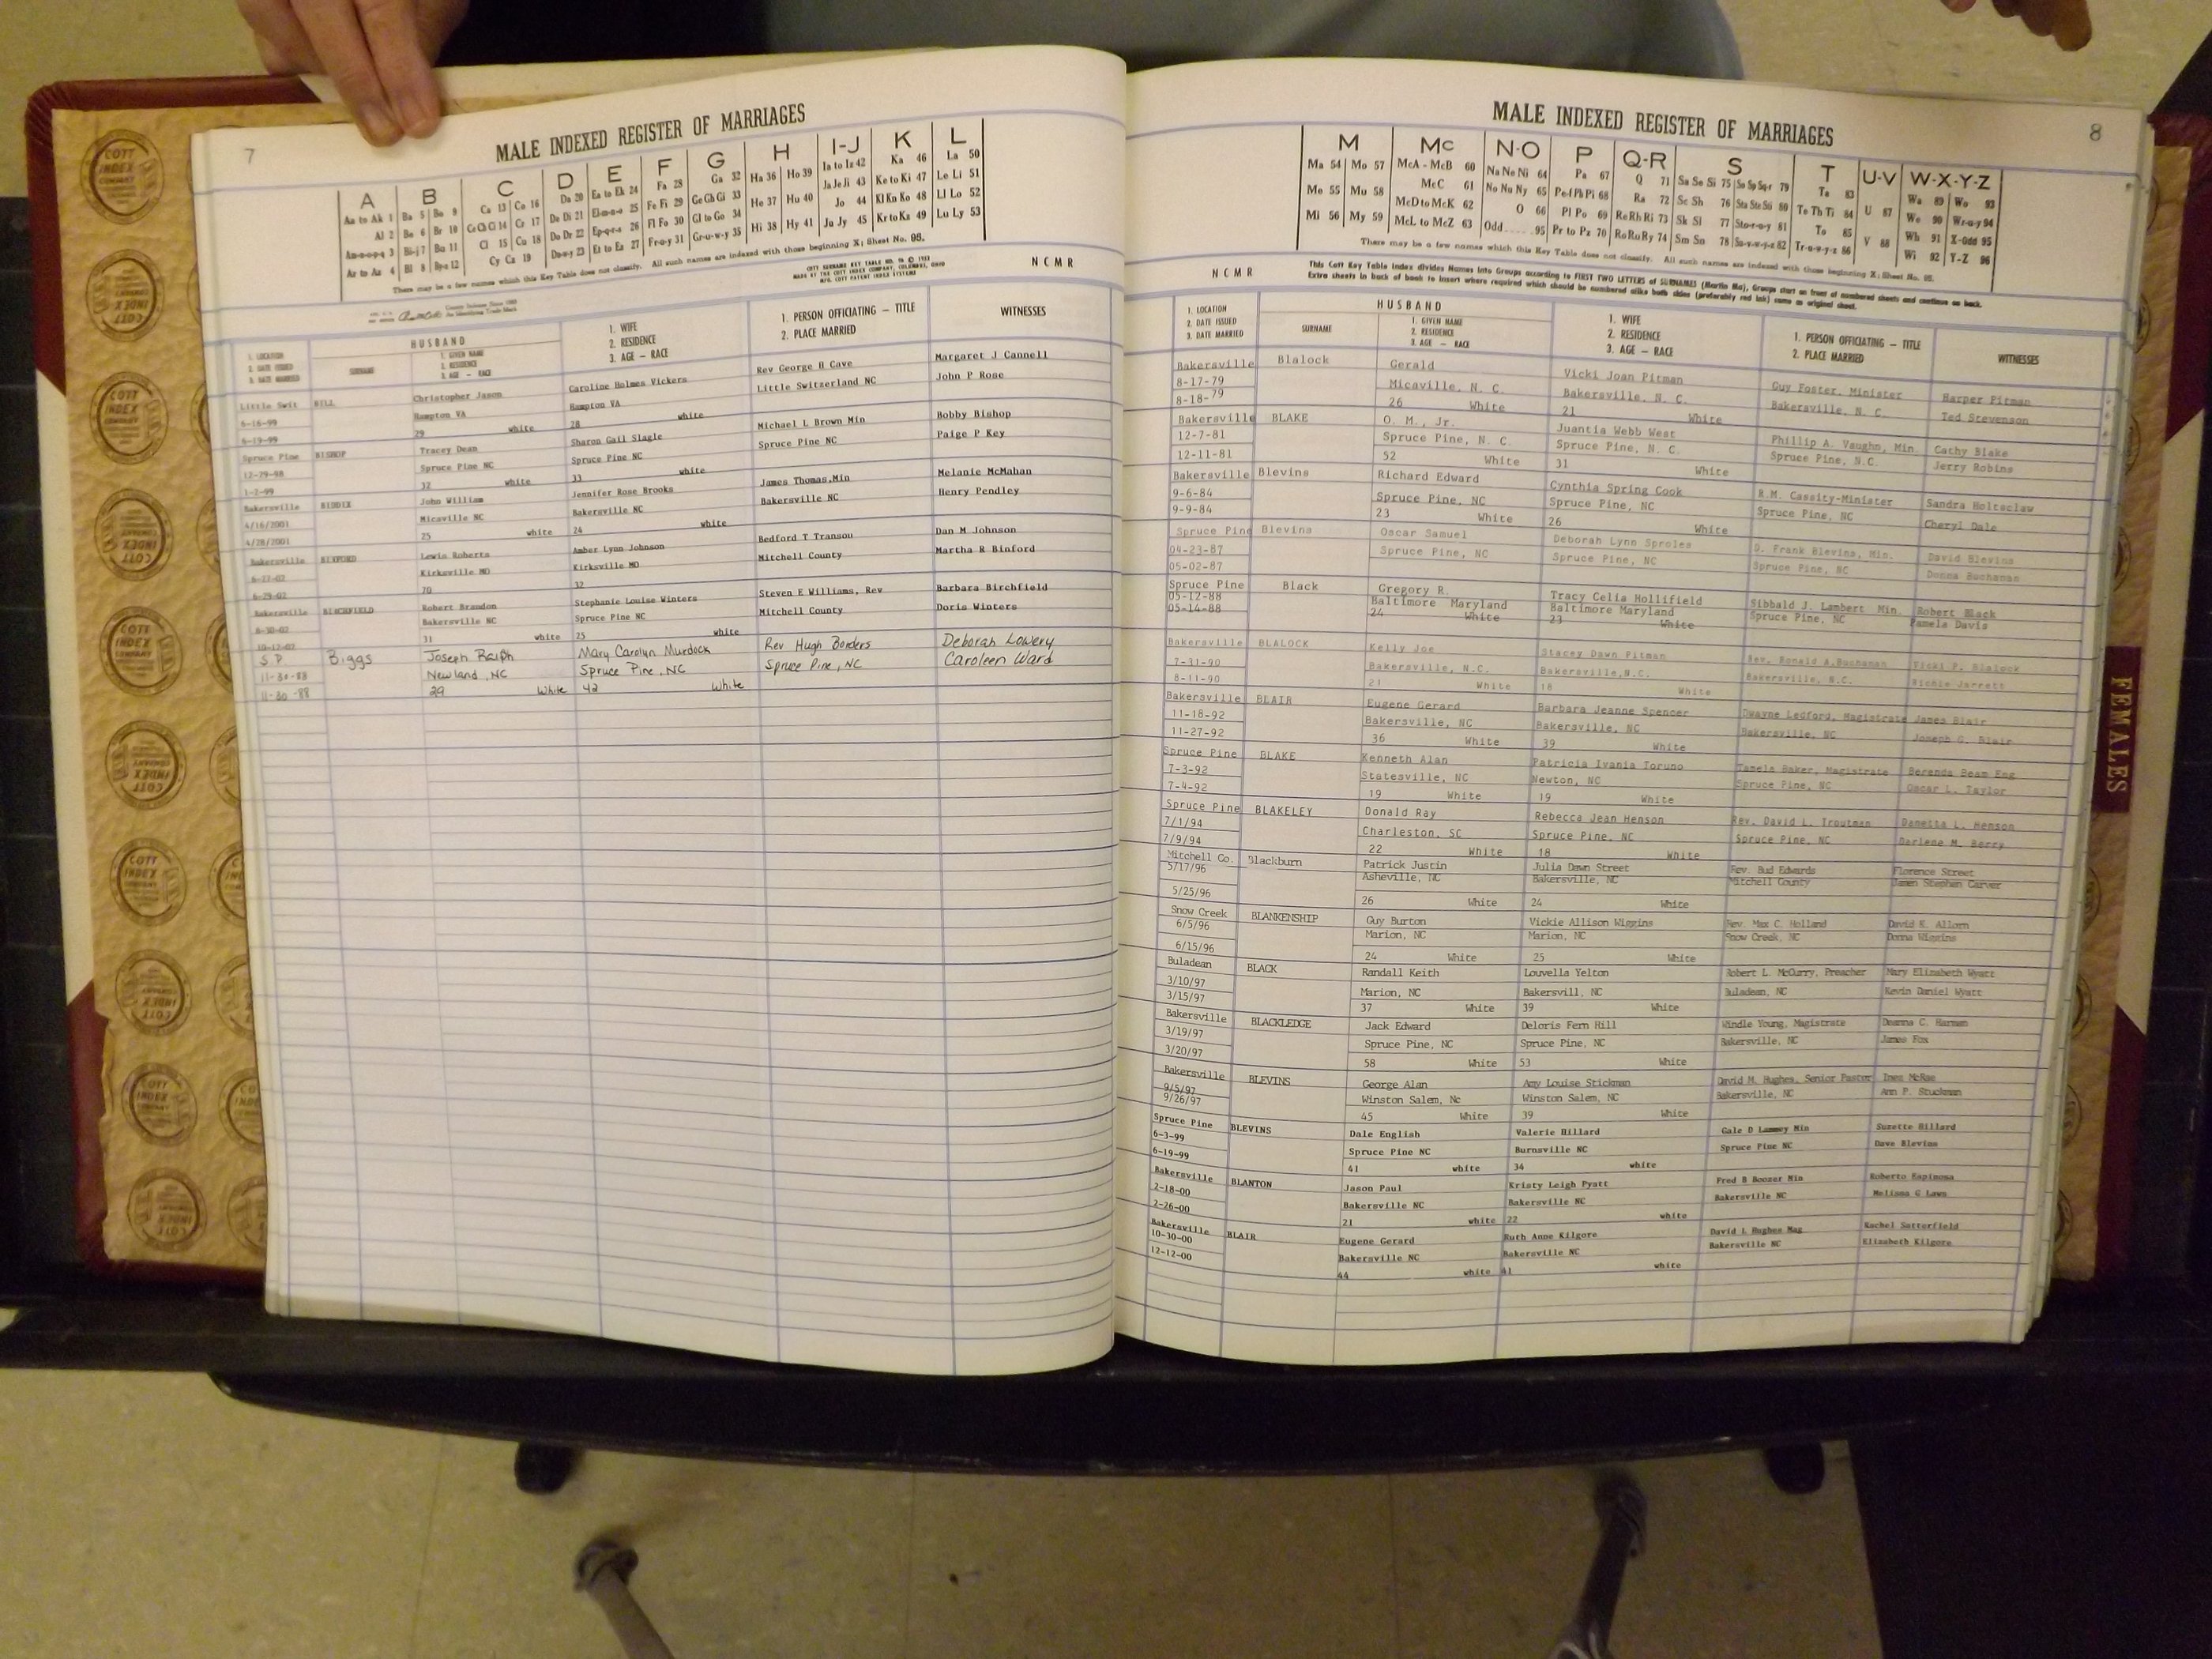 7
MALE INDEXED REGISTER OF MARRIAGES
A B C D E F G H I-J K L
Aa to Ak 1 Ba 5 Bo 9 Ca 13 Co 16 Da 20 Ea to Ek 24 Fa 28 Ga 32 Ha 36 Ho 39 Ia to Iz 42 Ka 46 La 50
Al 2 Be 6 Br 10 Ce Ch Ci 14 Cr 17 De Di 21 El-m-n-o 25 Fe Fi 29 Ge Gh Gi 33 He 37 Hu 40 Ja Je Ji 43 Ke to Ki 47 Le Li 51
Am-n-o-p-q 3 Bi-j 7 Bu 11 Cl 15 Cu 18 Do Dr 22 Ep-q-r-s 26 Fl Fo 30 Gl to Go 34 Hi 38 Hy 41 Jo 44 Kl Kn Ko 48 Ll Lo 52
Ar to Az 4 Bl 8 By-z 12 Cy Cz 19 Du-w-y 23 Et to Ez 27 Fr-u-y 31 Gr-u-w-y 35 Ju Jy 45 Kr to Kz 49 Lu Ly 53
There may be a few names which this Key Table does not classify. All such names are indexed with those beginning X; Sheet No. 95.
NCMR
HUSBAND
1. LOCATION
2. DATE ISSUED
3. DATE MARRIED
SURNAME
1. GIVEN NAME
2. RESIDENCE
3. AGE — RACE
1. WIFE
2. RESIDENCE
3. AGE — RACE
1. PERSON OFFICIATING — TITLE
2. PLACE MARRIED
WITNESSES
Little Swit BILL Christopher Jason Caroline Holmes Vickers Rev George H Cave Margaret J Cannell
6-16-99 Hampton VA Hampton VA Little Switzerland NC John P Rose
6-19-99 29 white 28 white
Spruce Pine BISHOP Tracey Dean Sharon Gail Slagle Michael L Brown Min Bobby Bishop
12-29-98 Spruce Pine NC Spruce Pine NC Spruce Pine NC Paige P Key
1-2-99 32 white 33 white
Bakersville BIDDIX John William Jennifer Rose Brooks James Thomas,Min Melanie McMahan
4/16/2001 Micaville NC Bakersville NC Bakersville NC Henry Pendley
4/28/2001 25 white 24 white
Bakersville BINFORD Lewis Roberts Amber Lynn Johnson Bedford T Transou Dan M Johnson
6-27-02 Kirksville MO Kirksville MO Mitchell County Martha R Binford
6-29-02 70 32
Bakersville BIRCHFIELD Robert Brandon Stephanie Louise Winters Steven E Williams, Rev Barbara Birchfield
8-30-02 Bakersville NC Spruce Pine NC Mitchell County Doris Winters
10-12-02 31 white 25 white
S.P Biggs Joseph Ralph Mary Carolyn Murdock Rev Hugh Borders Deborah Lowery
11-30-88 Newland, NC Spruce Pine, NC Spruce Pine, NC Caroleen Ward
11-30-88 29 White 42 White
8
MALE INDEXED REGISTER OF MARRIAGES
M Mc N-O P Q-R S T U-V W-X-Y-Z
Ma 54 Mo 57 McA - McB 60 Na Ne Ni 64 Pa 67 Q 71 Sa Se Si 75 So Sp Sq-r 79 Ta 83 Wa 89 Wo 93
Me 55 Mu 58 McC 61 No Nu Ny 65 Pe-f Ph Pi 68 Ra 72 Sc Sh 76 Sta Ste Sti 80 Te Th Ti 84 U 87 We 90 Wr-u-y 94
Mi 56 My 59 McD to McK 62 O 66 Pl Po 69 Re Rh Ri 73 Sk Sl 77 Sto-r-u-y 81 To 85 V 88 Wh 91 X-Odd 95
McL to McZ 63 Odd 95 Pr to Pz 70 Ro Ru Ry 74 Sm Sn 78 Su-v-w-y-z 82 Tr-u-w-y-z 86 Wi 92 Y-Z 96
There may be a few names which this Key Table does not classify. All such names are indexed with those beginning X; Sheet No. 95.
This Cott Key Table Index divides Names into Groups according to FIRST TWO LETTERS of SURNAMES (Martin Ma), Groups start on front of numbered sheets and continue on back.
Extra sheets in back of book to insert where required which should be numbered alike both sides (preferably red ink) same as original sheet.
NCMR
HUSBAND
1. LOCATION
2. DATE ISSUED
3. DATE MARRIED
SURNAME
1. GIVEN NAME
2. RESIDENCE
3. AGE — RACE
1. WIFE
2. RESIDENCE
3. AGE — RACE
1. PERSON OFFICIATING — TITLE
2. PLACE MARRIED
WITNESSES
Bakersville Blalock Gerald Vicki Joan Pitman Guy Foster, Minister Harper Pitman
8-17-79 Micaville, N. C. Bakersville, N. C. Bakersville, N. C. Ted Stevenson
8-18-79 26 White 21 White
Bakersville BLAKE O. M., Jr. Juantia Webb West Phillip A. Vaughn, Min. Cathy Blake
12-7-81 Spruce Pine, N. C. Spruce Pine, N. C. Spruce Pine, N.C. Jerry Robins
12-11-81 52 White 31 White
Bakersville Blevins Richard Edward Cynthia Spring Cook R.M. Cassity-Minister Sandra Holtsclaw
9-6-84 Spruce Pine, NC Spruce Pine, NC Spruce Pine, NC Cheryl Dale
9-9-84 23 White 26 White
Spruce Pine Blevins Oscar Samuel Deborah Lynn Sproles D. Frank Blevins, Min. David Blevins
04-23-87 Spruce Pine, NC Spruce Pine, NC Spruce Pine, NC Donna Buchanan
05-02-87
Spruce Pine Black Gregory R. Tracy Celia Hollifield Sibbald J. Lambert Min. Robert Black
05-12-88 Baltimore Maryland Baltimore Maryland Spruce Pine, NC Pamela Davis
05-14-88 24 White 23 White
Bakersville BLALOCK Kelly Joe Stacey Dawn Pitman Rev. Ronald A.Buchanan Vicki P. Blalock
7-31-90 Bakersville, N.C. Bakersville,N.C. Bakersville, N.C. Richie Jarrett
8-11-90 21 White 18 White
Bakersville BLAIR Eugene Gerard Barbara Jeanne Spencer Dwayne Ledford, Magistrate James Blair
11-18-92 Bakersville, NC Bakersville, NC Bakersville, NC Joseph G. Blair
11-27-92 36 White 39 White
Spruce Pine BLAKE Kenneth Alan Patricia Ivania Toruno Tamela Baker, Magistrate Berenda Beam Eng
7-3-92 Statesville, NC Newton, NC Spruce Pine, NC Oscar L. Taylor
7-4-92 19 White 19 White
Spruce Pine BLAKELEY Donald Ray Rebecca Jean Henson Rev. David L. Troutman Danetta L. Henson
7/1/94 Charleston, SC Spruce Pine, NC Spruce Pine, NC Darlene M. Berry
7/9/94 22 White 18 White
Mitchell Co. Blackburn Patrick Justin Julia Dawn Street Rev. Bud Edwards Florence Street
5/17/96 Asheville, NC Bakersville, NC Mitchell County James Stephen Carver
5/25/96 26 White 24 White
Snow Creek BLANKENSHIP Guy Burton Vickie Allison Wiggins Rev. Max C. Holland David E. Allorn
6/5/96 Marion, NC Marion, NC Snow Creek, NC Donna Wiggins
6/15/96 24 White 25 White
Buladean BLACK Randall Keith Louvella Yelton Robert L. McCurry, Preacher Mary Elizabeth Wyatt
3/10/97 Marion, NC Bakersvill, NC Buladean, NC Kevin Daniel Wyatt
3/15/97 37 White 39 White
Bakersville BLACKLEDGE Jack Edward Deloris Fern Hill Windle Young, Magistrate Deanna C. Harman
3/19/97 Spruce Pine, NC Spruce Pine, NC Bakersville, NC James Fox
3/20/97 58 White 53 White
Bakersville BLEVINS George Alan Amy Louise Stickman David M. Hughes, Senior Pastor Inez McRae
9/5/97 Winston Salem, Nc Winston Salem, NC Bakersville, NC Ann P. Stuckman
9/26/97 45 White 39 White
Spruce Pine BLEVINS Dale English Valerie Hillard Gale D Lammey Min Suzette Hillard
6-3-99 Spruce Pine NC Burnsville NC Spruce Pine NC Dave Blevins
6-19-99 41 white 34 white
Bakersville BLANTON Jason Paul Kristy Leigh Pyatt Fred B Boozer Min Roberto Espinosa
2-18-00 Bakersville NC Bakersville NC Bakersville NC Melissa G Laws
2-26-00 21 white 22 white
Bakersville BLAIR Eugene Gerard Ruth Anne Kilgore David L Hughes Mag Rachel Satterfield
10-30-00 Bakersville NC Bakersville NC Bakersville NC Elizabeth Kilgore
12-12-00 44 white 41 white
FEMALES
COTT
INDEX
COMPANY